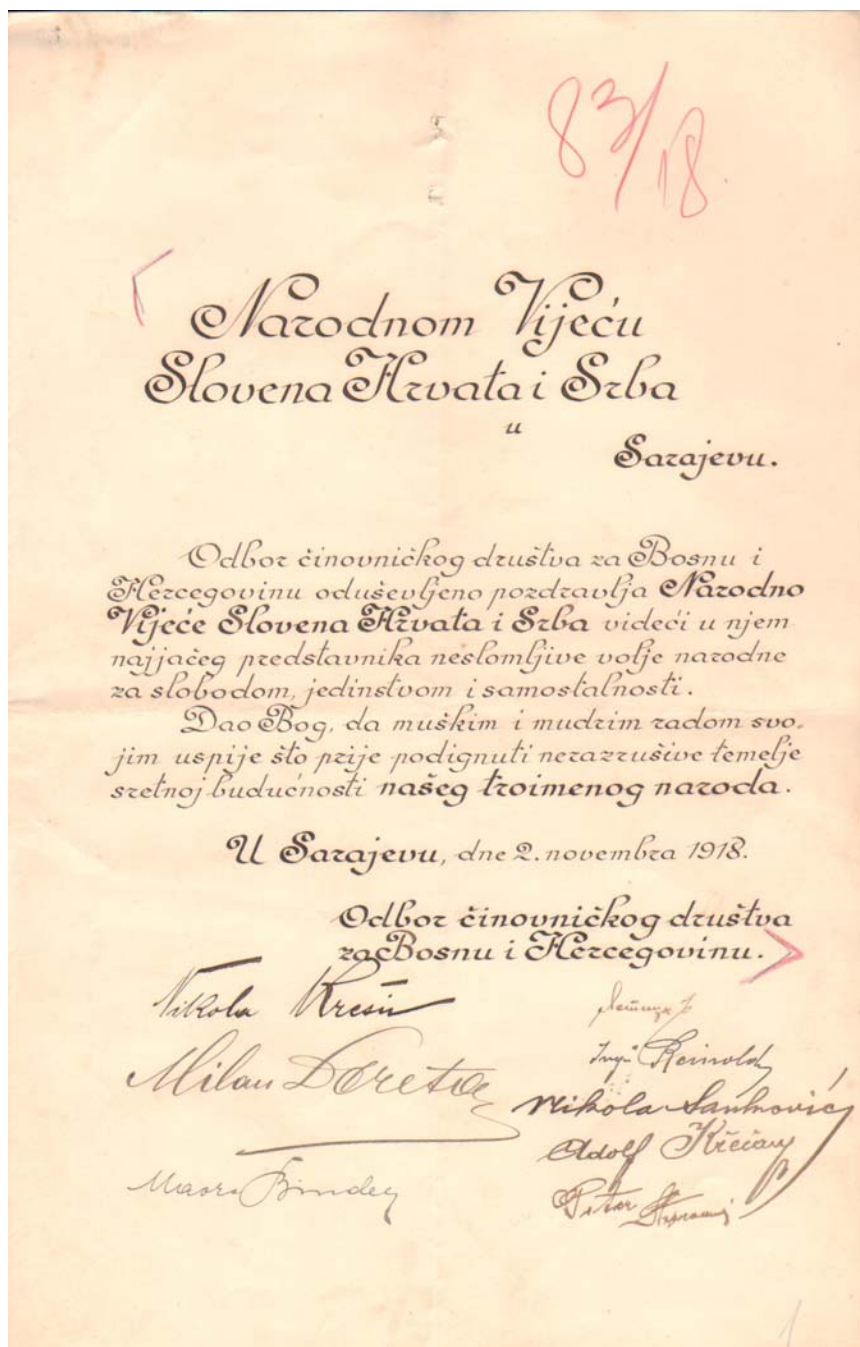 83/18
Narodnom Vijeću
Slovena Hrvata i Srba
u
Sarajevu.
Odbor činovničkog društva za Bosnu i
Hercegovinu oduševljeno pozdravlja Narodno
Vijeće Slovena Hrvata i Srba videći u njem
najjačeg predstavnika neslomljive volje narodne
za slobodom, jedinstvom i samostalnosti.
Dao Bog, da muškim i mudrim radom svo-
jim uspije što prije podignuti nerazrušive temelje
sretnoj budućnosti našeg troimenog naroda.
U Sarajevu, dne 2. novembra 1918.
Odbor činovničkog društva
za Bosnu i Hercegovinu.
Nikola
Milan
Reinold
Nikola
Adolf
Peter